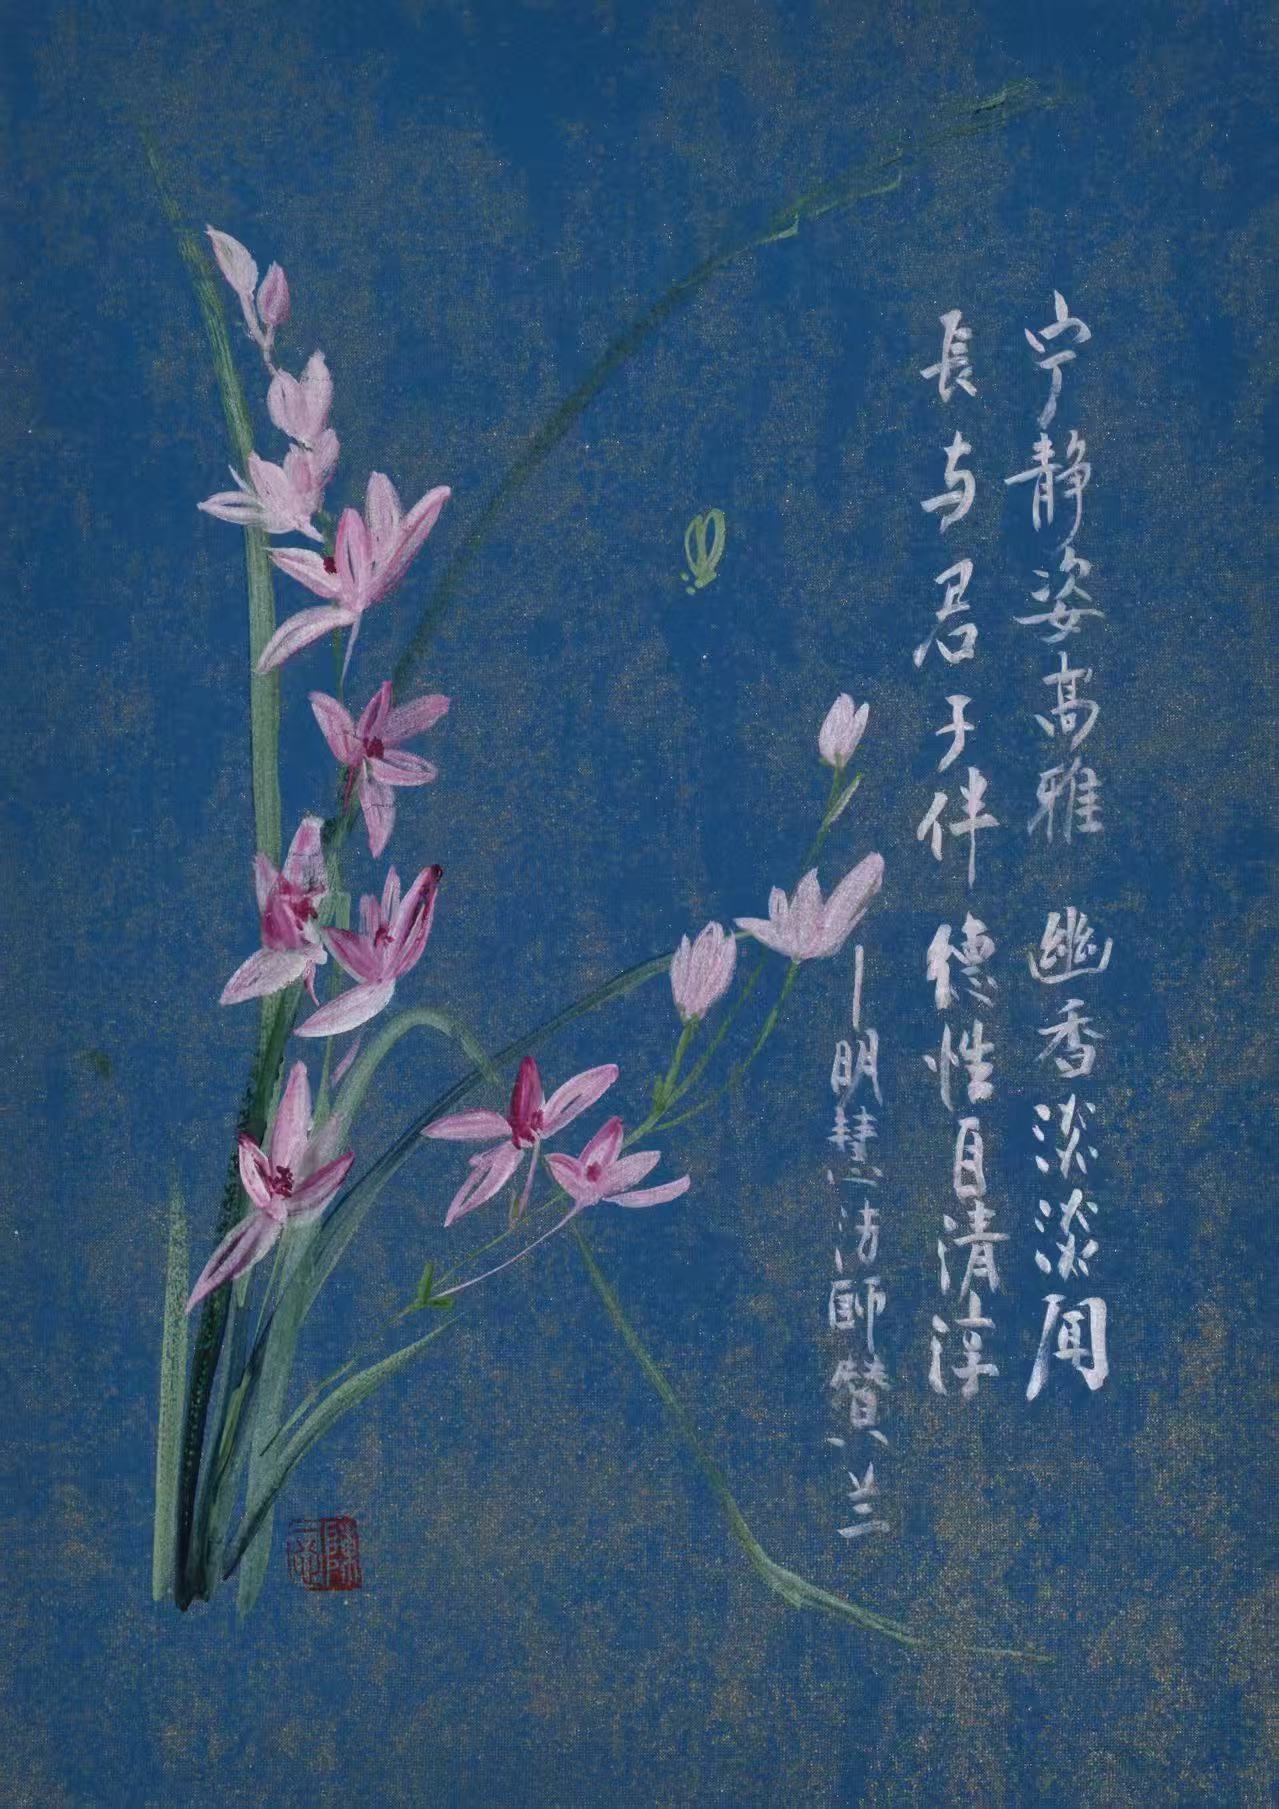 宁静姿高雅 幽香淡淡闻
長与君子伴 德性自清淳
—明慧法師赞兰